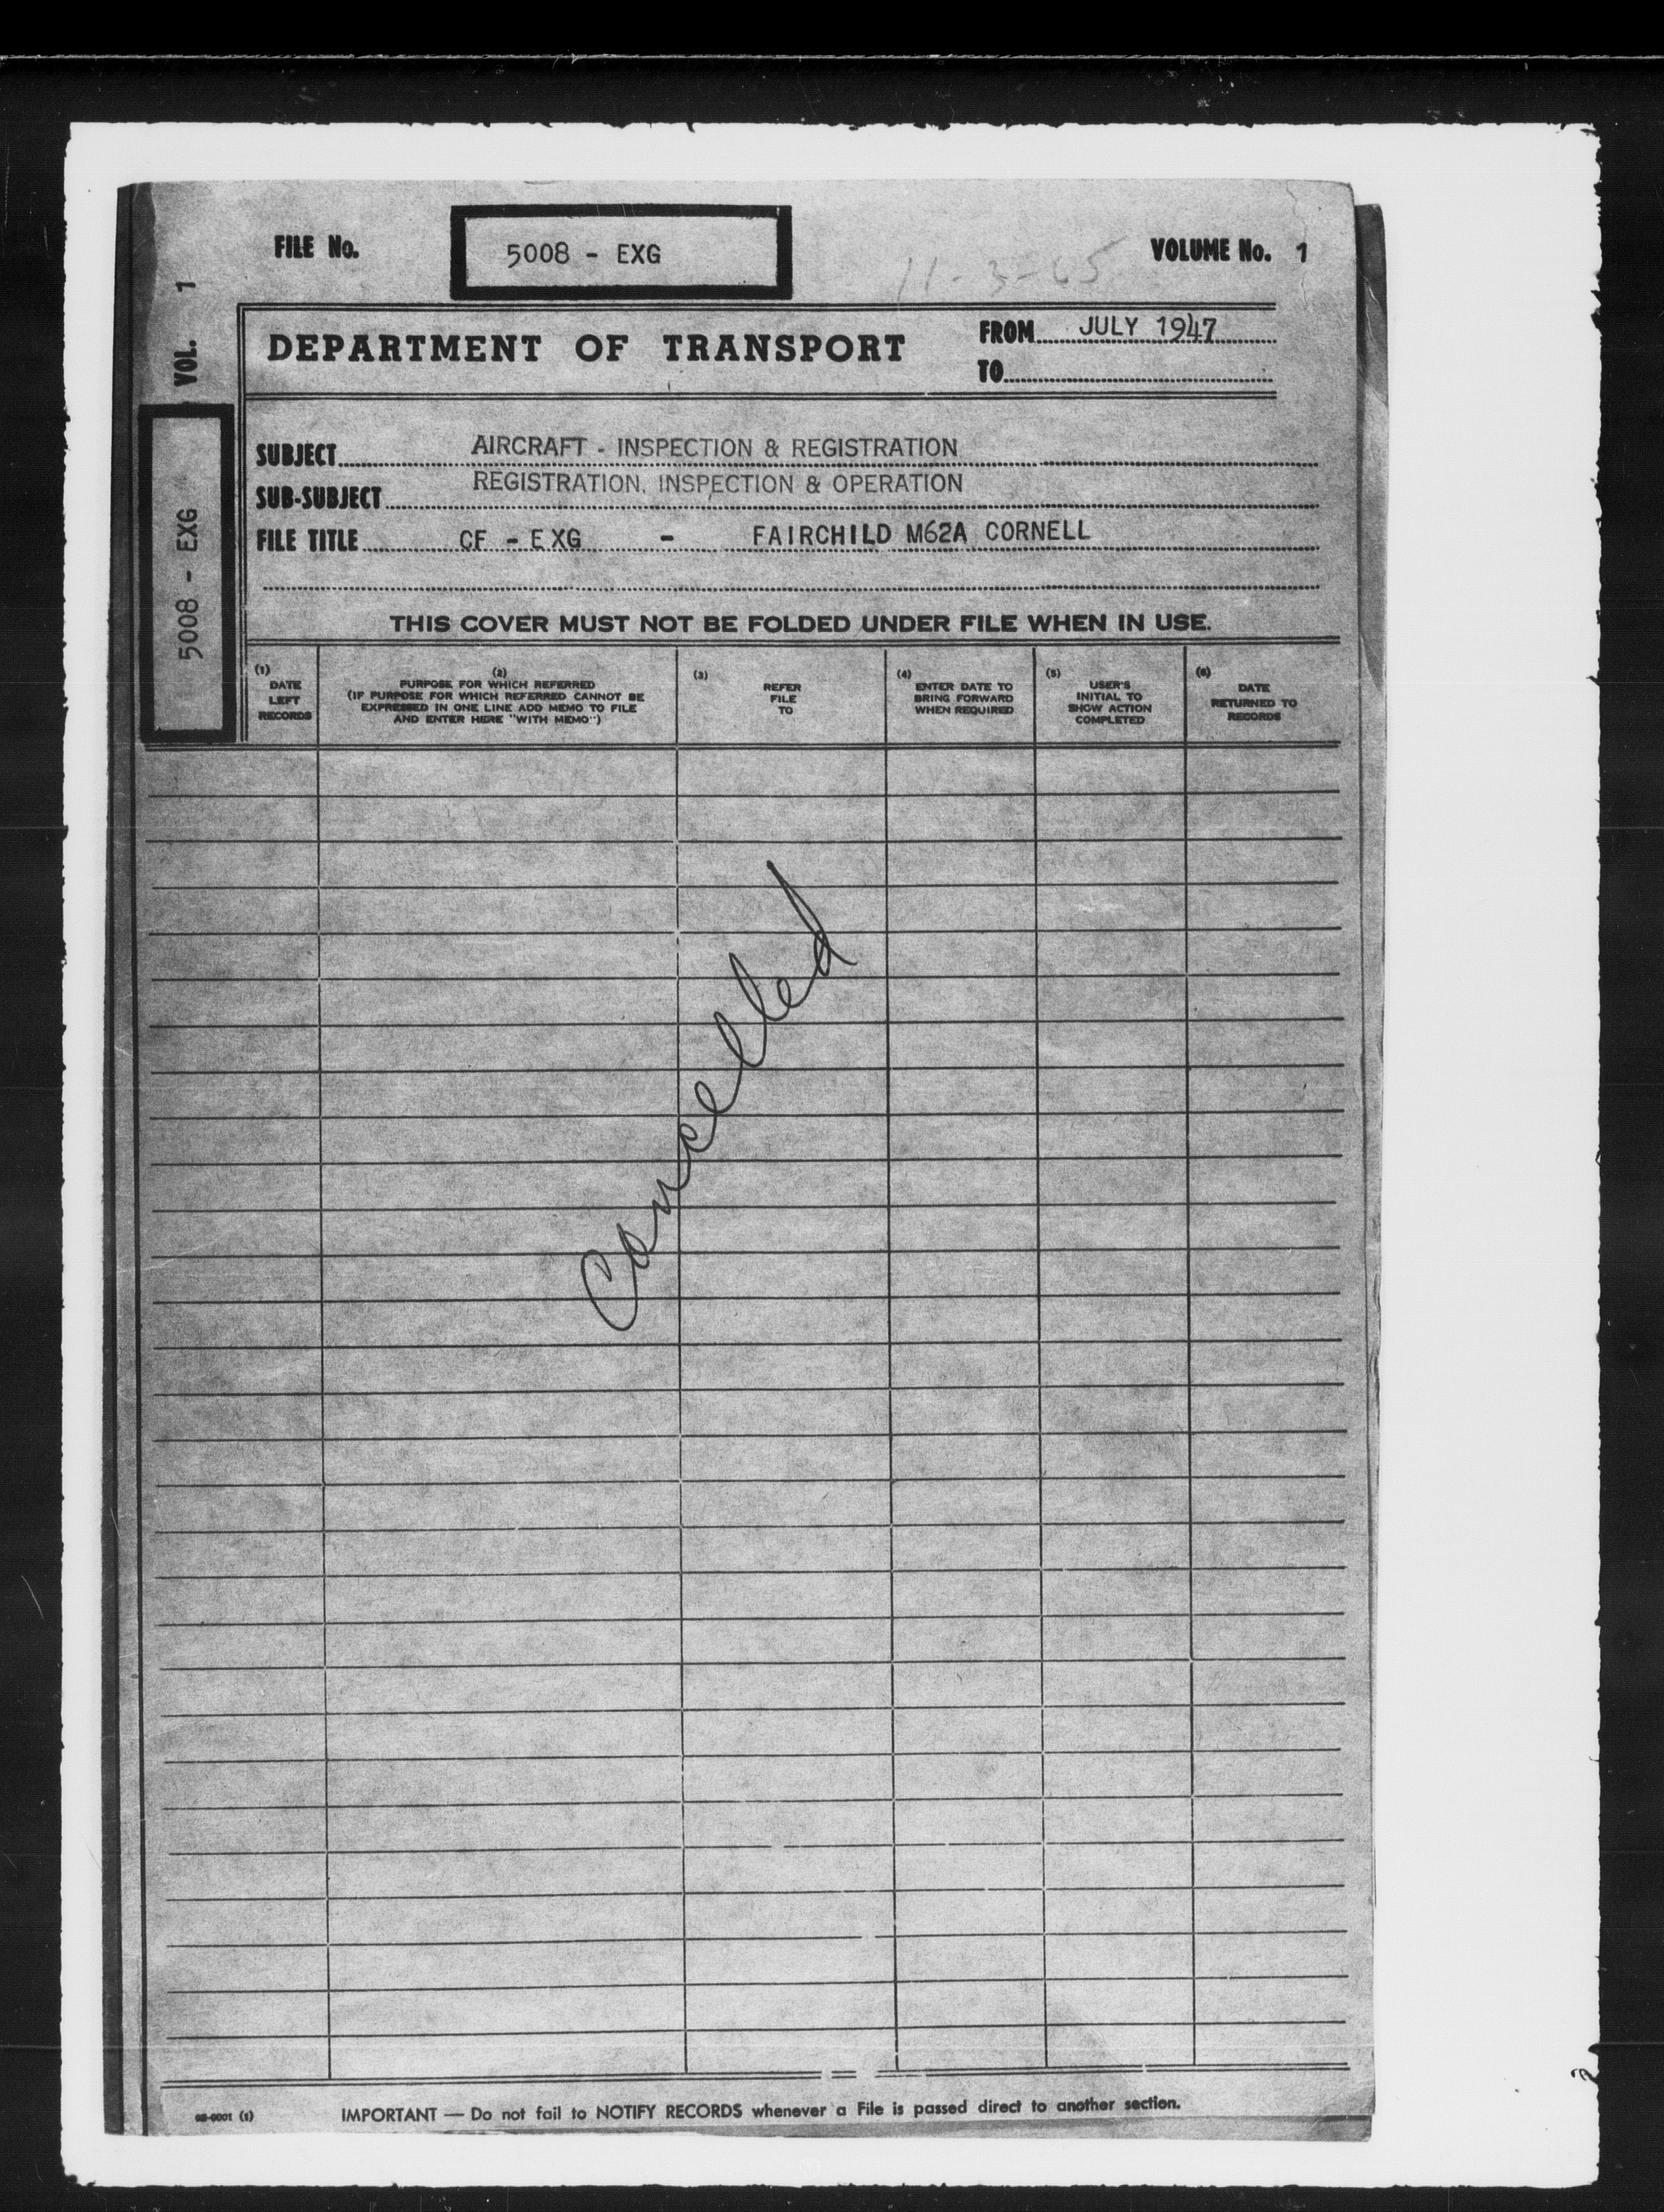 FILE No. 5008 - EXG VOLUME No. 1
11-3-65
VOL. 1
5008 - EXG
DEPARTMENT OF TRANSPORT
FROM JULY 1947
TO
SUBJECT AIRCRAFT - INSPECTION & REGISTRATION
SUB-SUBJECT REGISTRATION, INSPECTION & OPERATION
FILE TITLE CF - EXG - FAIRCHILD M62A CORNELL
THIS COVER MUST NOT BE FOLDED UNDER FILE WHEN IN USE.
(1)
DATE
LEFT
RECORDS
(2)
PURPOSE FOR WHICH REFERRED
(IF PURPOSE FOR WHICH REFERRED CANNOT BE
EXPRESSED IN ONE LINE ADD MEMO TO FILE
AND ENTER HERE "WITH MEMO")
(3)
REFER
FILE
TO
(4)
ENTER DATE TO
BRING FORWARD
WHEN REQUIRED
(5)
USER'S
INITIAL TO
SHOW ACTION
COMPLETED
(6)
DATE
RETURNED TO
RECORDS
Cancelled
(1) IMPORTANT — Do not fail to NOTIFY RECORDS whenever a File is passed direct to another section.